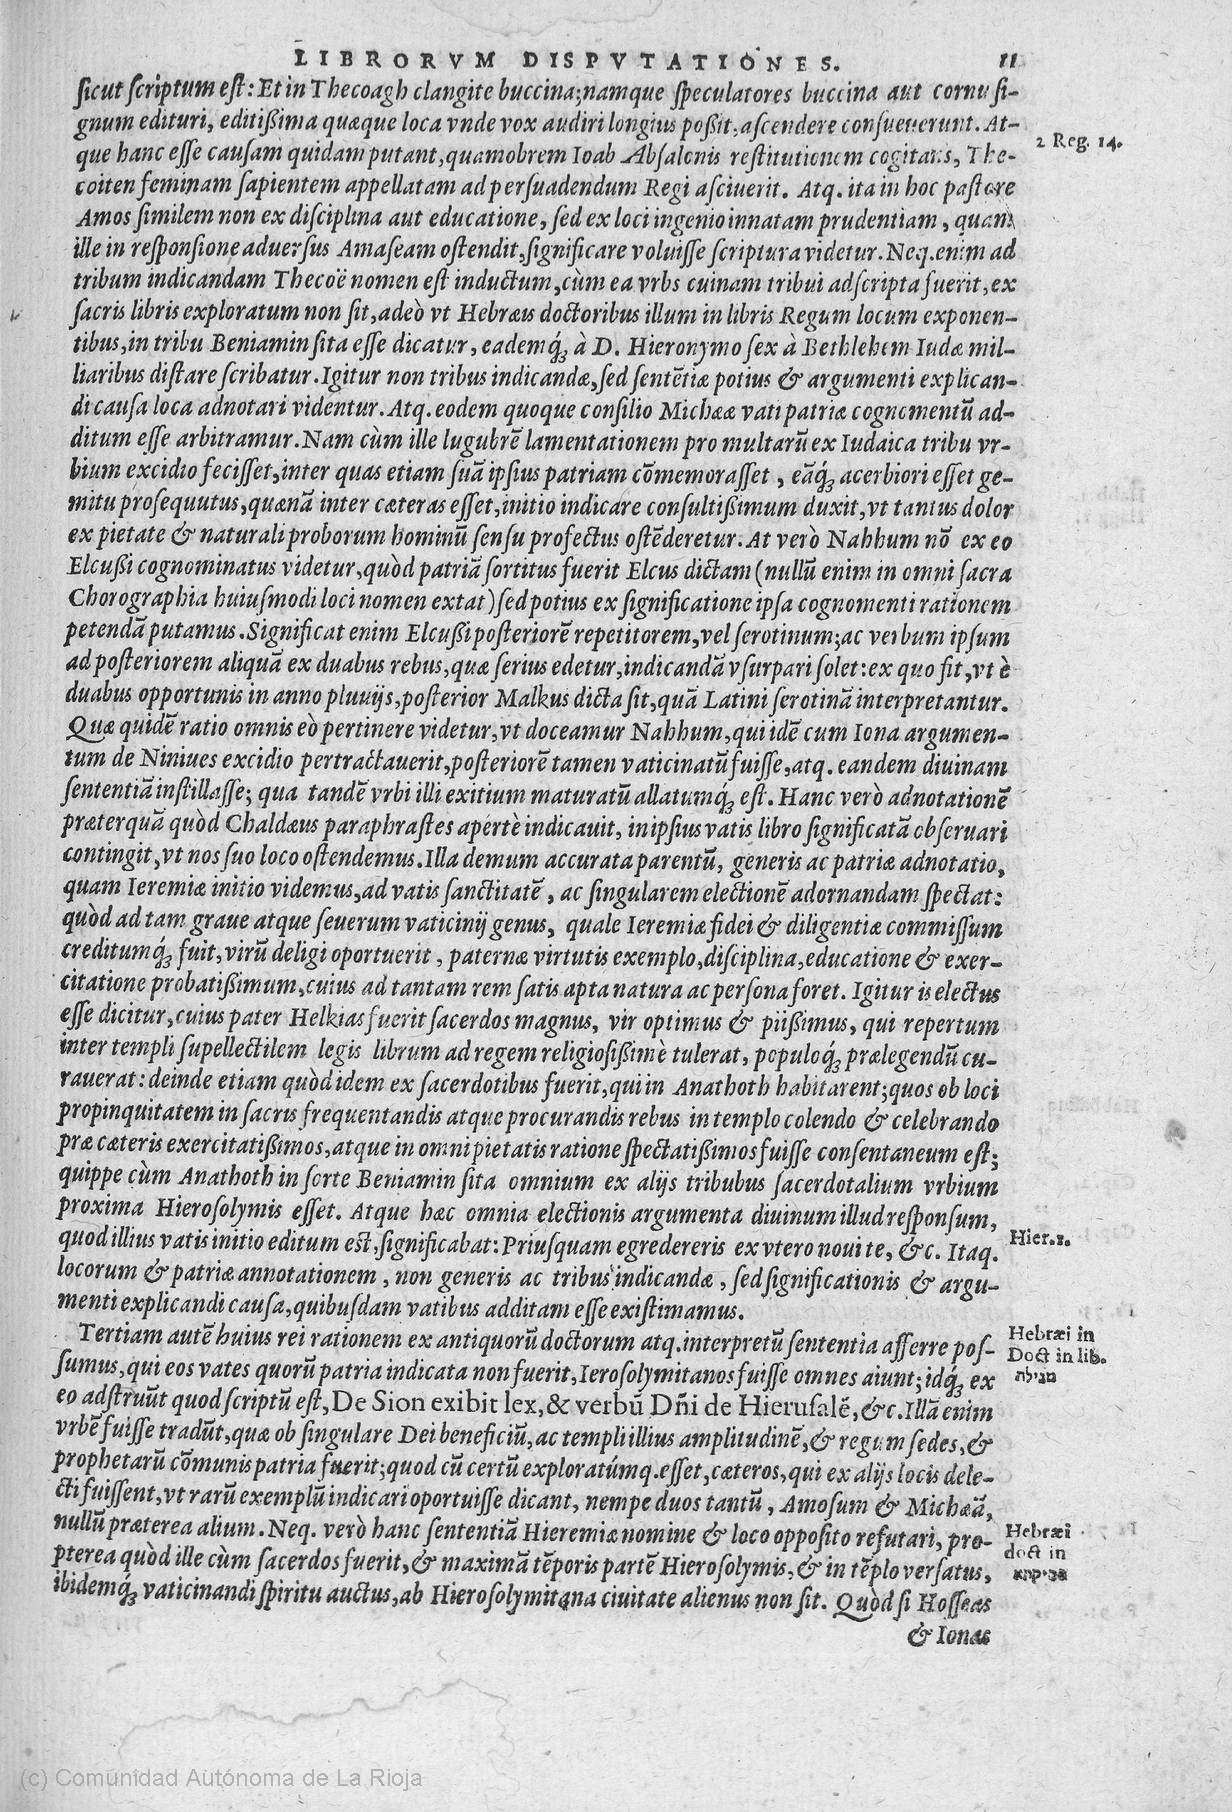 LIBRORVM DISPVTATIONES. 11
sicut scriptum est: Et in Thecoagh clangite buccina; namque speculatores buccina aut cornu si-
gnum edituri, editißima quæque loca vnde vox audiri longius poßit, ascendere consueuerunt. At-
que hanc esse causam quidam putant, quamobrem Ioab Absalonis restitutionem cogitans, The-
2 Reg. 14.
coiten feminam sapientem appellatam ad persuadendum Regi asciuerit. Atq. ita in hoc pastore
Amos similem non ex disciplina aut educatione, sed ex loci ingenio innatam prudentiam, quam
ille in responsione aduersus Amaseam ostendit, significare voluisse scriptura videtur. Neq. enim ad
tribum indicandam Thecoë nomen est inductum, cùm ea vrbs cuinam tribui adscripta fuerit, ex
sacris libris exploratum non sit, adeò vt Hebræis doctoribus illum in libris Regum locum exponen-
tibus, in tribu Beniamin sita esse dicatur, eademq́; à D. Hieronymo sex à Bethlehem Iudæ mil-
liaribus distare scribatur. Igitur non tribus indicandæ, sed sentētiæ potius & argumenti explican-
di causa loca adnotari videntur. Atq. eodem quoque consilio Michææ vati patriæ cognomentū ad-
ditum esse arbitramur. Nam cùm ille lugubrē lamentationem pro multarū ex Iudaica tribu vr-
bium excidio fecisset, inter quas etiam suā ipsius patriam cōmemorasset, eāq́; acerbiori esset ge-
mitu prosequutus, quænā inter cæteras esset, initio indicare consultißimum duxit, vt tantus dolor
ex pietate & naturali proborum hominū sensu profectus ostēderetur. At verò Nahhum nō ex eo
Elcußi cognominatus videtur, quòd patriā sortitus fuerit Elcus dictam (nullū enim in omni sacra
Chorographia huiusmodi loci nomen extat) sed potius ex significatione ipsa cognomenti rationem
petendā putamus. Significat enim Elcußi posteriorē repetitorem, vel serotinum; ac verbum ipsum
ad posteriorem aliquā ex duabus rebus, quæ serius edetur, indicandā vsurpari solet: ex quo fit, vt è
duabus opportunis in anno pluuijs, posterior Malkus dicta sit, quā Latini serotinā interpretantur.
Quæ quidē ratio omnis eò pertinere videtur, vt doceamur Nahhum, qui idē cum Iona argumen-
tum de Niniues excidio pertractauerit, posteriorē tamen vaticinatū fuisse, atq. eandem diuinam
sententiā instillasse; qua tandē vrbi illi exitium maturatū allatumq́; est. Hanc verò adnotationē
præterquā quòd Chaldæus paraphrastes apertè indicauit, in ipsius vatis libro significatā obseruari
contingit, vt nos suo loco ostendemus. Illa demum accurata parentū, generis ac patriæ adnotatio,
quam Ieremiæ initio videmus, ad vatis sanctitatē, ac singularem electionē adornandam spectat:
quòd ad tam graue atque seuerum vaticinij genus, quale Ieremiæ fidei & diligentiæ commissum
creditumq́; fuit, virū deligi oportuerit, paternæ virtutis exemplo, disciplina, educatione & exer-
citatione probatißimum, cuius ad tantam rem satis apta natura ac persona foret. Igitur is electus
esse dicitur, cuius pater Helkias fuerit sacerdos magnus, vir optimus & piißimus, qui repertum
inter templi supellectilem legis librum ad regem religiosißimè tulerat, populoq́; prælegendū cu-
rauerat: deinde etiam quòd idem ex sacerdotibus fuerit, qui in Anathoth habitarent; quos ob loci
propinquitatem in sacris frequentandis atque procurandis rebus in templo colendo & celebrando
præ cæteris exercitatißimos, atque in omni pietatis ratione spectatißimos fuisse consentaneum est;
quippe cùm Anathoth in sorte Beniamin sita omnium ex alijs tribubus sacerdotalium vrbium
proxima Hierosolymis esset. Atque hæc omnia electionis argumenta diuinum illud responsum,
quod illius vatis initio editum est, significabat: Priusquam egredereris ex vtero noui te, &c. Itaq.
Hier. 1.
locorum & patriæ annotationem, non generis ac tribus indicandæ, sed significationis & argu-
menti explicandi causa, quibusdam vatibus additam esse existimamus.
Tertiam autē huius rei rationem ex antiquorū doctorum atq. interpretū sententia afferre pos-
Hebræi in
Doct in lib.
מגילה
sumus, qui eos vates quorū patria indicata non fuerit, Ierosolymitanos fuisse omnes aiunt; idq́; ex
eo adstruūt quod scriptū est, De Sion exibit lex, & verbū Dñi de Hierusalē, &c. Illā enim
vrbē fuisse tradūt, quæ ob singulare Dei beneficiū, ac templi illius amplitudinē, & regum sedes, &
prophetarū cōmunis patria fuerit; quod cū certū exploratúmq. esset, cæteros, qui ex alijs locis dele-
cti fuissent, vt rarū exemplū indicari oportuisse dicant, nempe duos tantū, Amosum & Michæā,
nullū præterea alium. Neq. verò hanc sententiā Hieremiæ nomine & loco opposito refutari, pro-
Hebræi
doct in
pterea quòd ille cùm sacerdos fuerit, & maximā tēporis partē Hierosolymis, & in tēplo versatus,
ibidemq́; vaticinandi spiritu auctus, ab Hierosolymitana ciuitate alienus non sit. Quòd si Hosseas
& Ionas
(c) Comunidad Autónoma de La Rioja